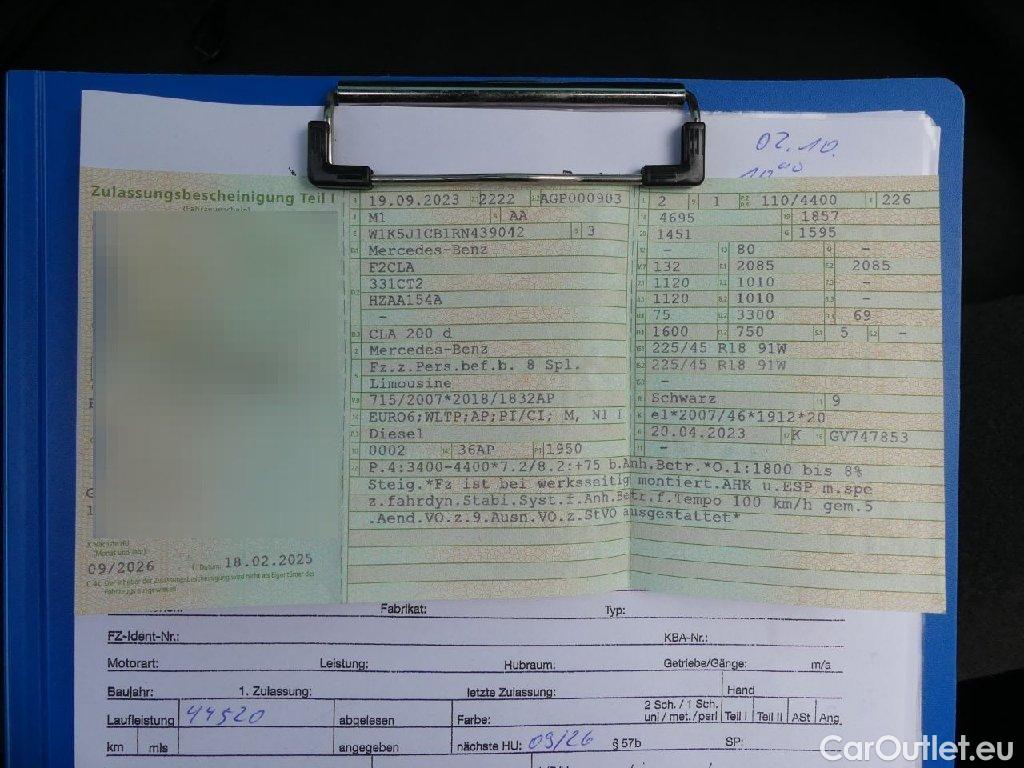 02.10.
Zulassungsbescheinigung Teil I
(Fahrzeugschein)
19.09.2023 2222 AGP000903
M1 AA
W1K5J1CB1RN439042 3
Mercedes-Benz
F2CLA
331CT2
HZAA154A
-
CLA 200 d
Mercedes-Benz
Fz.z.Pers.bef.b. 8 Spl.
Limousine
715/2007*2018/1832AP
EURO6;WLTP;AP;PI/CI; M, N1 I
Diesel
0002 36AP 1950
2 1 110/4400 226
4695 1857
1451 1595
- 80 -
132 2085 2085
1120 1010 -
1120 1010 -
75 3300 69
1600 750 5 -
225/45 R18 91W
225/45 R18 91W
-
Schwarz 9
e1*2007/46*1912*20
20.04.2023 K GV747853
-
P.4:3400-4400*7.2/8.2:+75 b.Anh.Betr.*O.1:1800 bis 8%
Steig.*Fz ist bei werksseitig montiert.AHK u.ESP m.spe
z.fahrdyn.Stabi.Syst.f.Anh.Betr.f.Tempo 100 km/h gem.5
.Aend.VO.z.9.Ausn.VO.z.StVO ausgestattet*
(Monat und Jahr)
09/2026 Datum: 18.02.2025
Fabrikat: Typ:
FZ-Ident-Nr.: KBA-Nr.:
Motorart: Leistung: Hubraum: Getriebe/Gänge: m/a
Baujahr: 1. Zulassung: letzte Zulassung: Hand
Laufleistung 44520 abgelesen Farbe: 2 Sch. / 1 Sch. uni / met. / perl Teil I Teil II ASt Anp
km mls angegeben nächste HU: 09/26 § 57b SP:
CarOutlet.eu